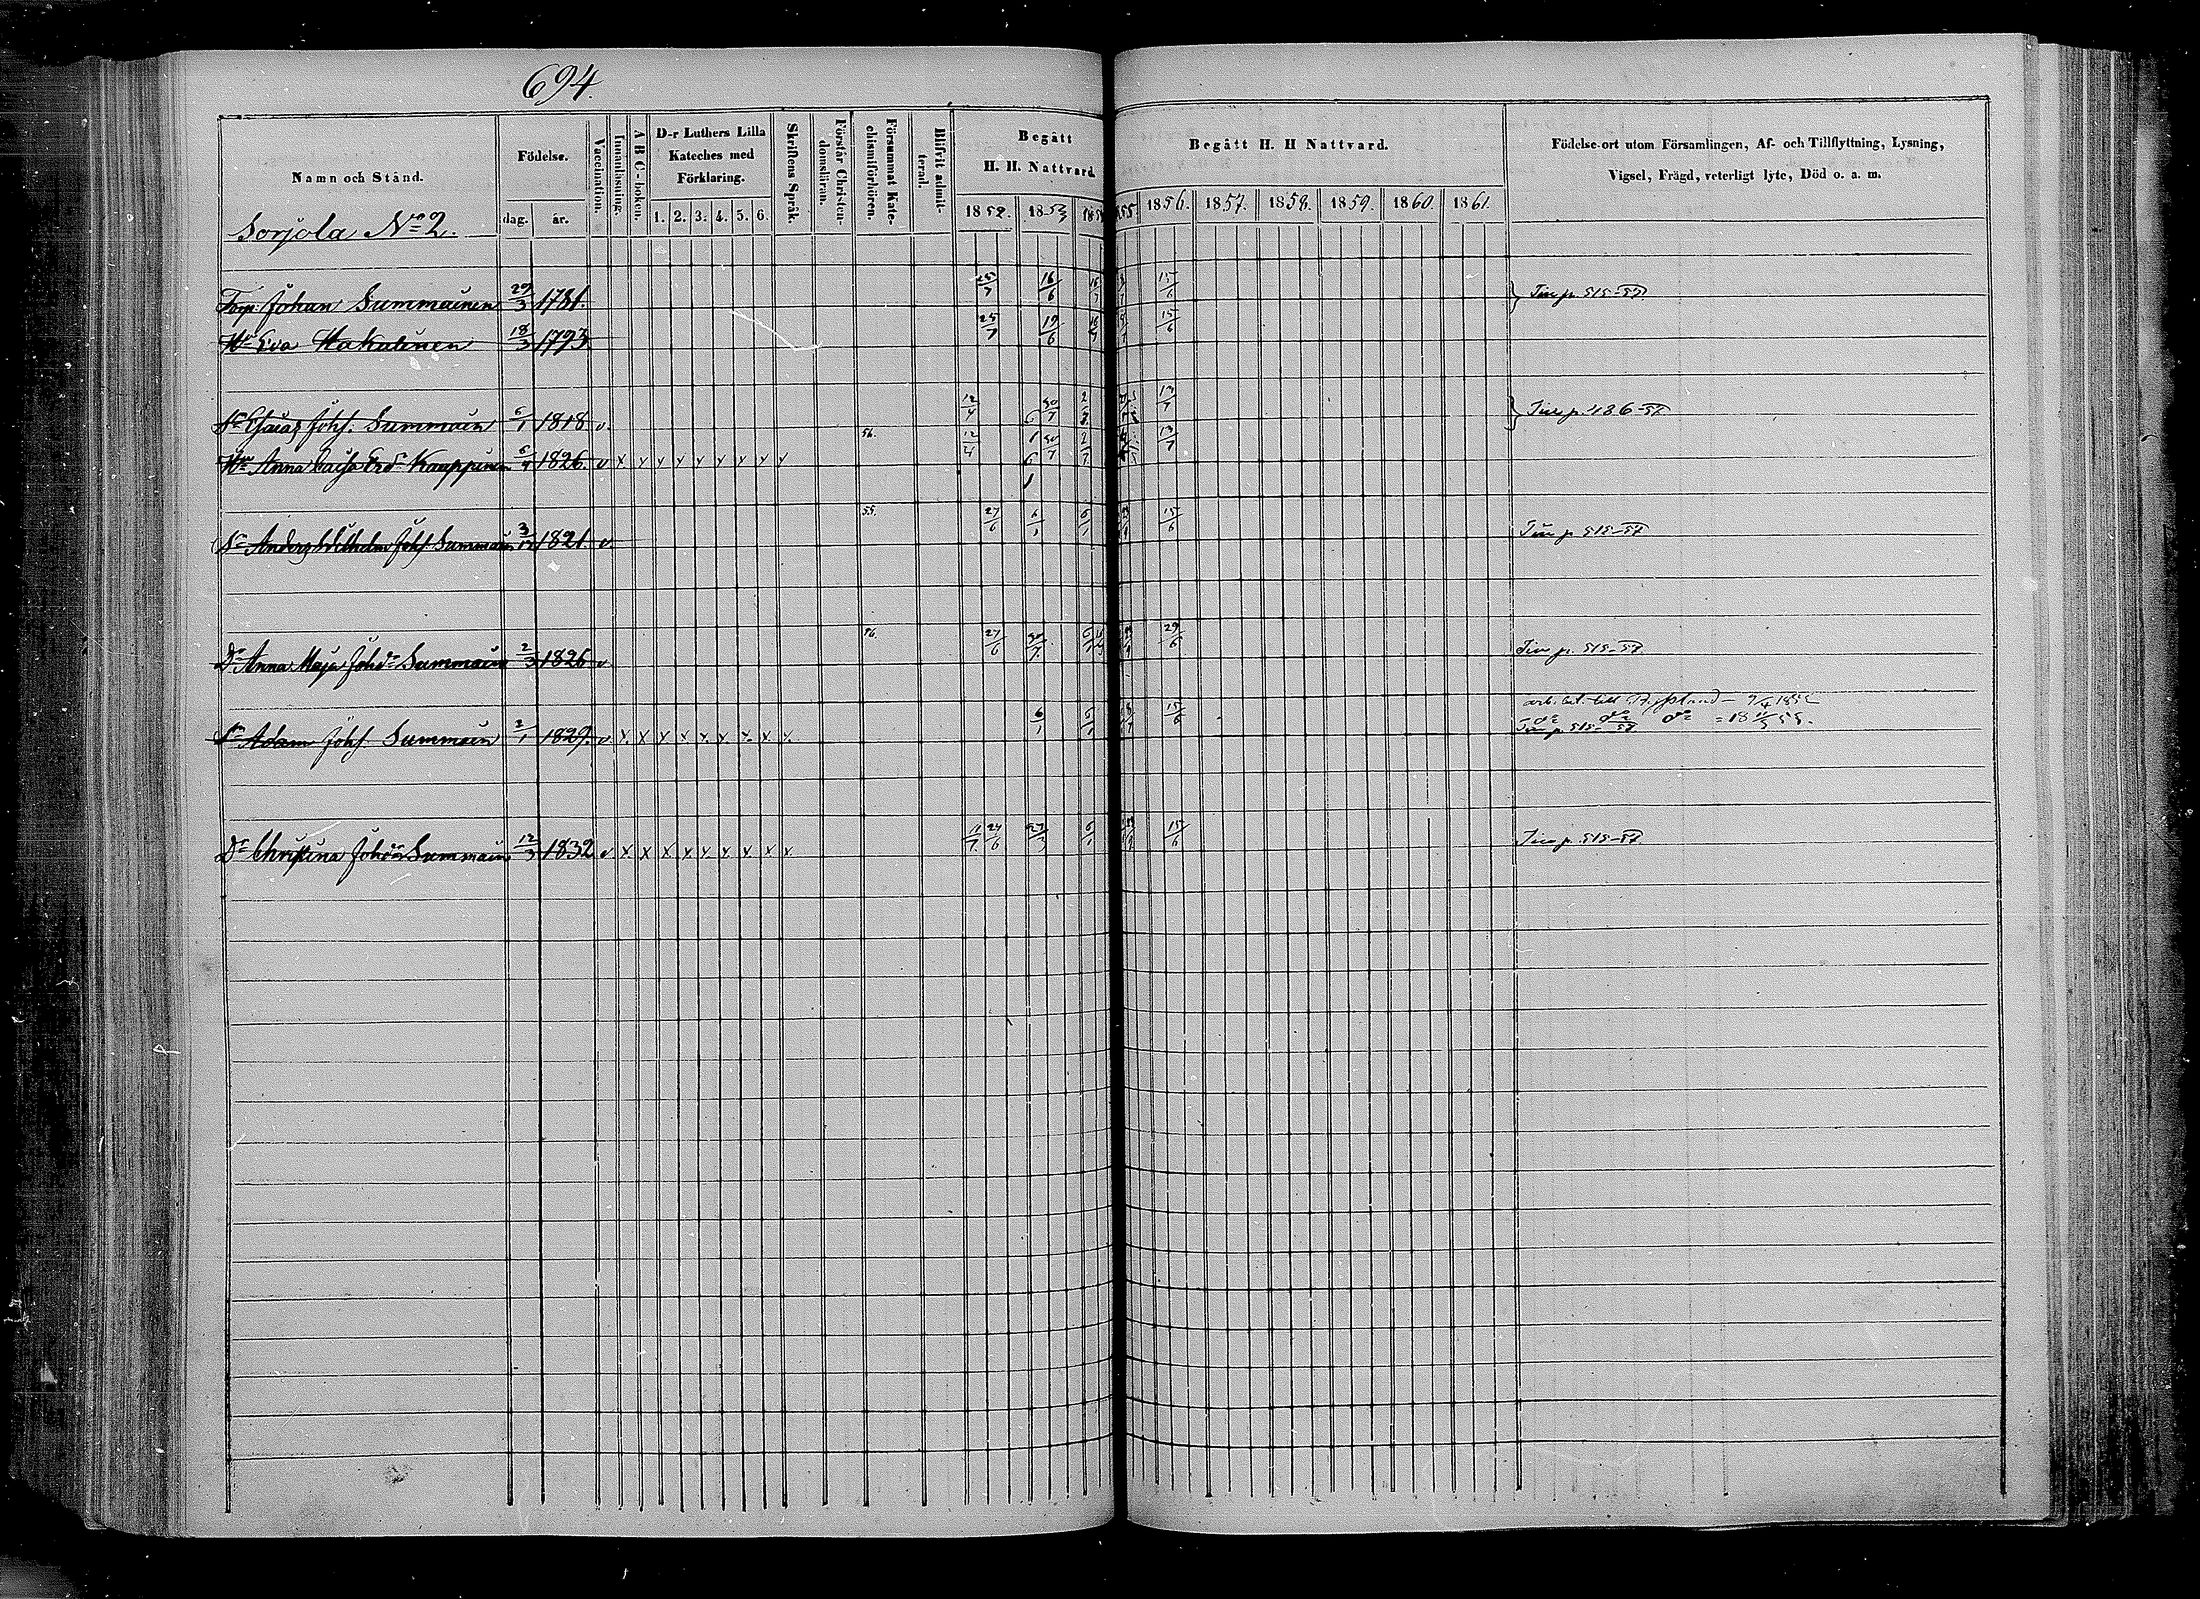 694.
Namn och Stånd.
Födelse.
dag. år.
Vaccination.
Innanläsning.
A B C-boken.
D-r Luthers Lilla
Kateches med
Förklaring.
1. 2. 3. 4. 5. 6.
Skriftens Språk.
Förstår Christen-
domsläran.
Försummat Kate-
chismiförhören.
Blifvit admit-
terad.
Begått
H. H. Nattvard.
1852. 1853 185
Begått H. H Nattvard.
55. 1856. 1857. 1858. 1859. 1860. 1861.
Födelse-ort utom Församlingen, Af- och Tillflyttning, Lysning,
Vigsel, Frägd, veterligt lyte, Död o. a. m.
Sorjola No 2.
Torp. Johan Summainen 29/3 1781. 25/7 16/6 15/6 p. 515-57
Hu Eva Hakulinen 18/3 1793. 25/7 19/6 15/6
Sn Esaias Johs. Summain 6/1 1818 v. 12/4 30/7 13/7 p. 186-57
Hu Anna Caisa Kauppinen 6/4 1826. v x x x x x x x x x 56. 12/4 30/7 13/7
Sn Anders Wilhelm Johs Summain 3/12 1821. v. 55. 27/6 6/1 6/1 15/6 p. 515-57
Dr Anna Maja Johdr Summain 2/3 1826 v 56. 27/6 30/7 29/6 p. 515-57
arb. bet. till Ryssland - 9/4 1852
Sn Adam Johs Summain 2/1 1829. v. x x x x x x x x x 6/1 6/1 15/6 p. 515-57
Dr Christina Johdr Summain 12/3 1832 v x x x x x x x x x 11/7 24/6 27/3 6/1 15/6 p. 515-57.